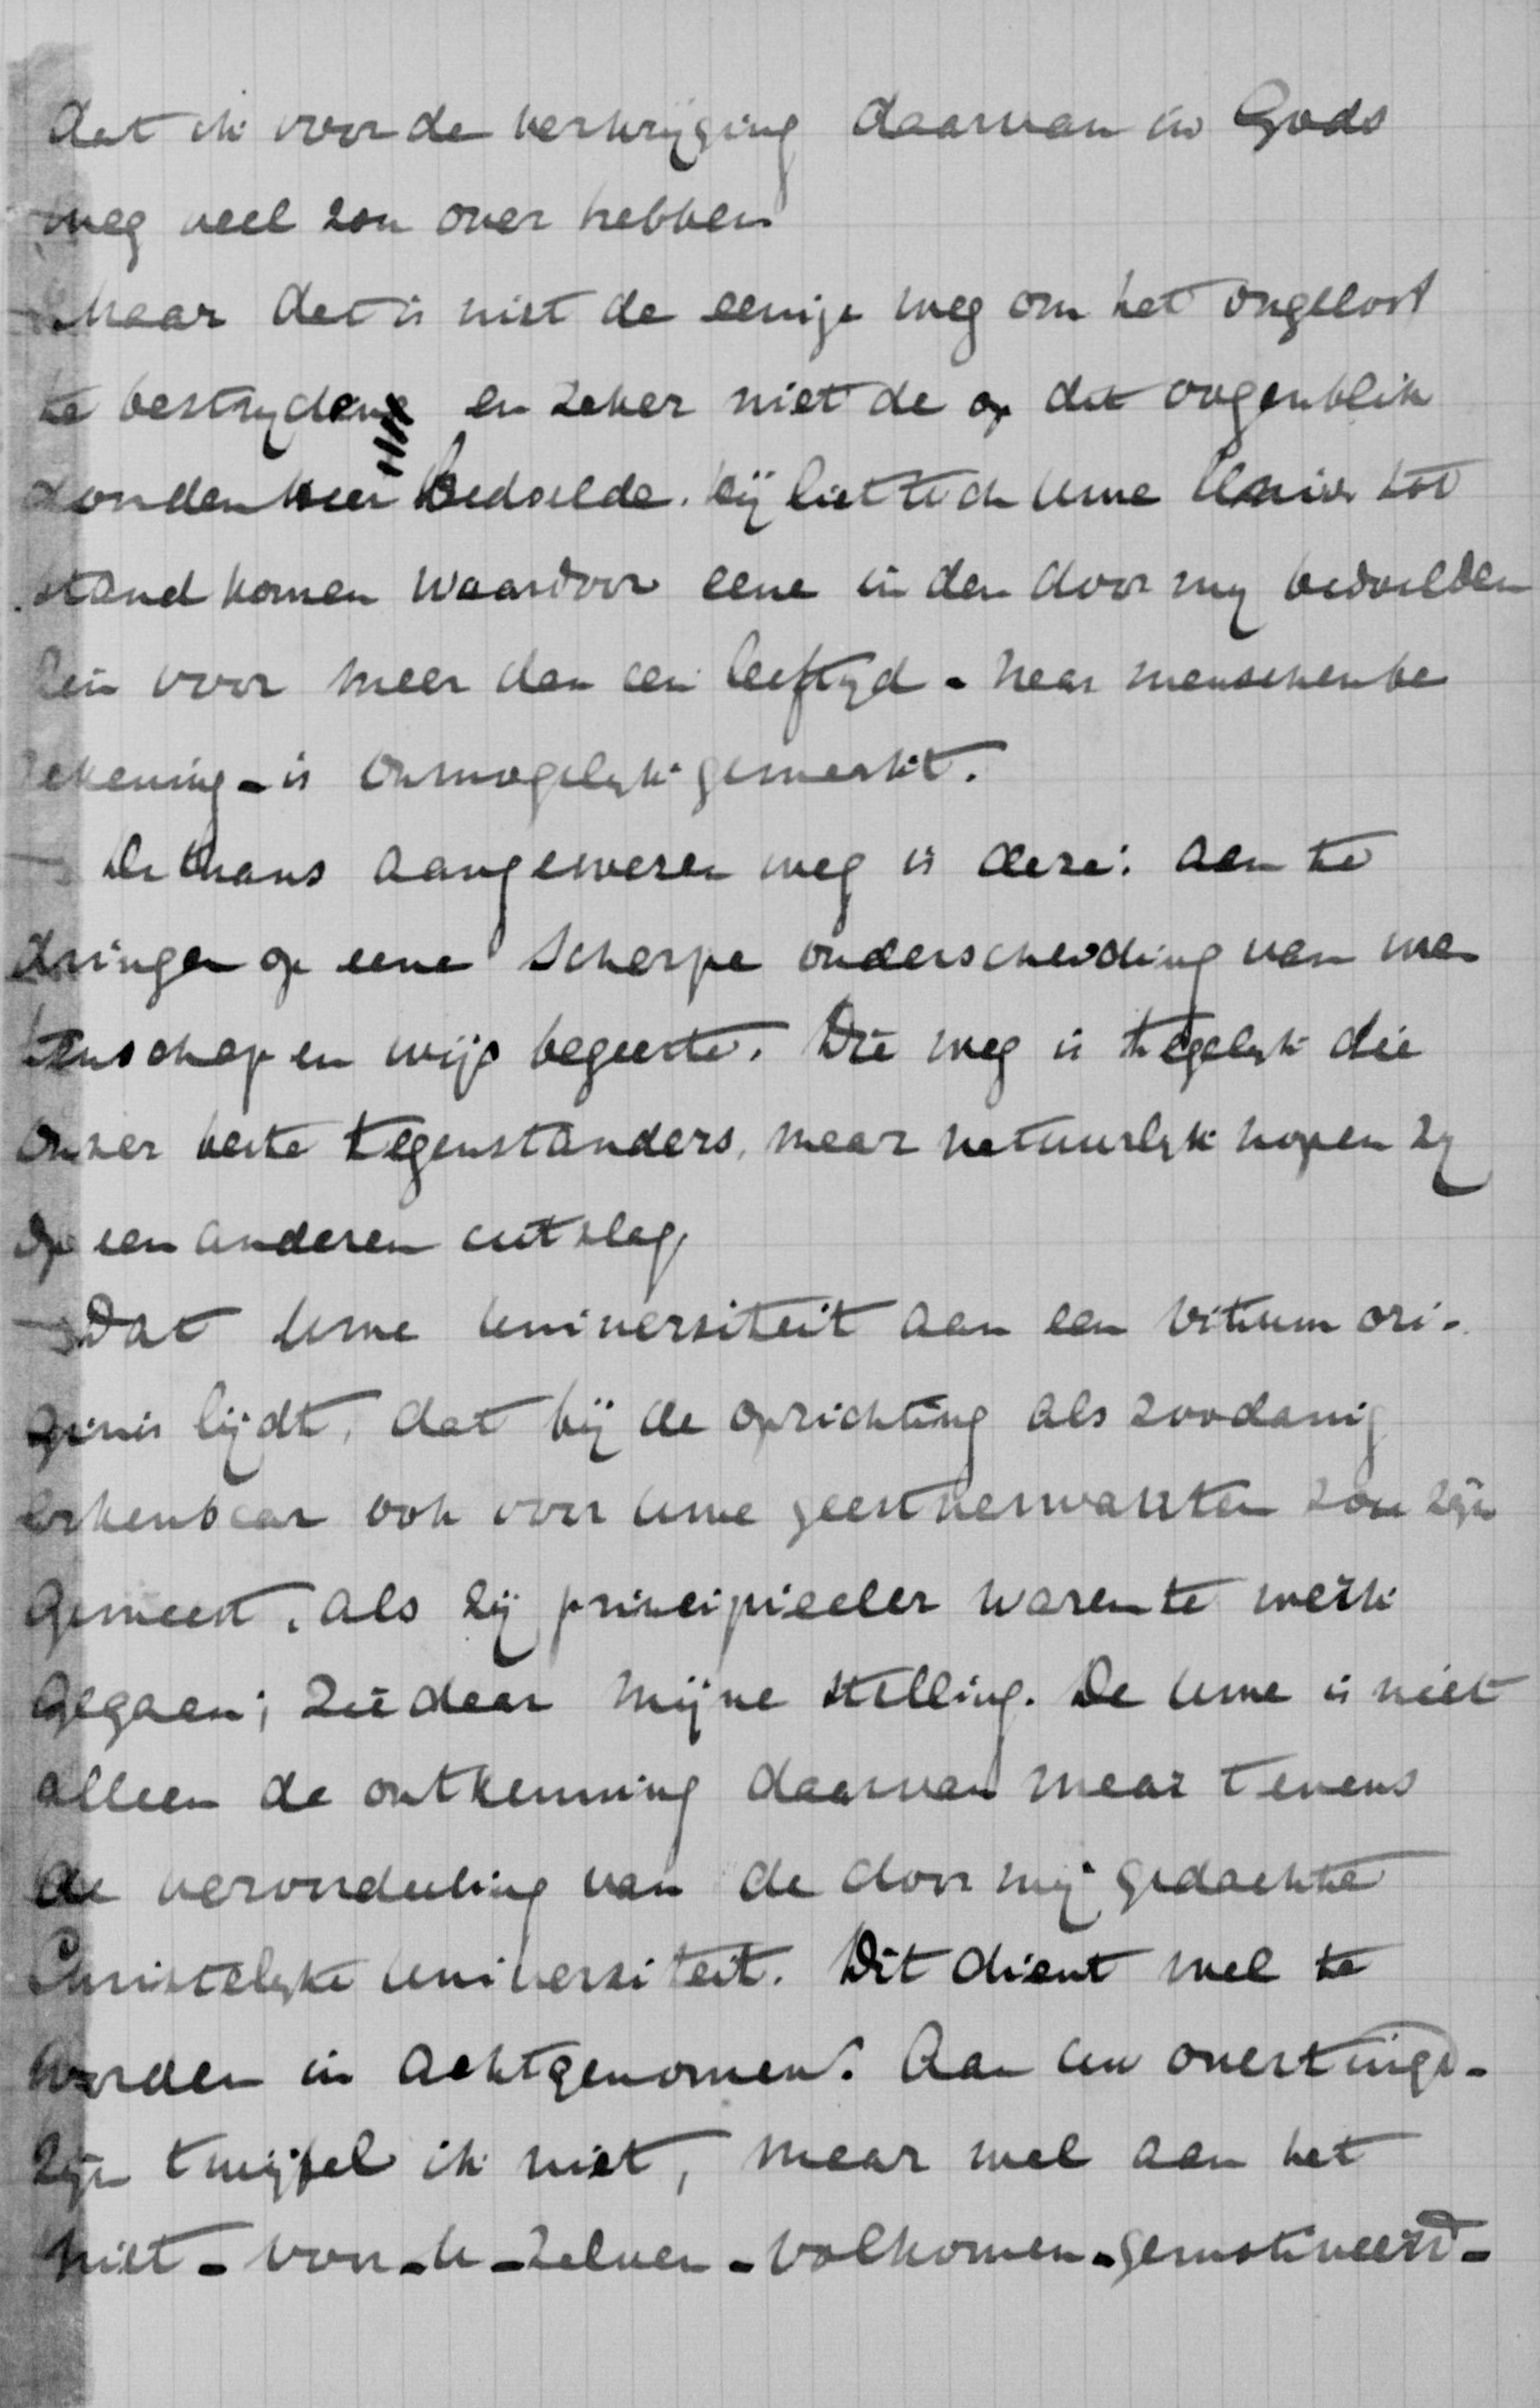 dat ik voor de verkrijging daarvan in Gods
weg veel zou over hebben
Maar dat is niet de eenige weg om het ongeloof
te bestrijden en zeker niet de op dit oogenblik
door den Heer Bedoelde. Hij liet toch Uwe Univ. tot
stand komen waardoor eene in den door mij bedoelden
zin voor meer dan een leeftijd - naar menschenbe
rekening - is onmogelijk gemaakt.
De thans aangewezen weg is deze: aan te
dringen op eene scherpe onderscheiding van we
tenschap en wijsbegeerte. Die weg is tegelijk die
onzer beste tegenstanders, maar natuurlijk hopen zij
op een anderen uitslag.
Dat Uwe Universiteit aan een vitium ori-
ginis lijdt, dat bij de oprichting als zoodanig
erkenbaar ook voor Uwe geestverwanten zou zijn
geweest, als zij principieeler waren te werk
gegaan; ziedaar mijne stelling. De Uwe is niet
alleen de ontkenning daarvan maar tevens
de veroordeeling van de door mij gedachte
Christelijke Universiteit. Dit dient wel te
worden in acht genomen. Aan Uw overtuigd-
zijn twijfel ik niet, maar wel aan het
niet - voor - U - zelven - volkomen - gemotiveerd -